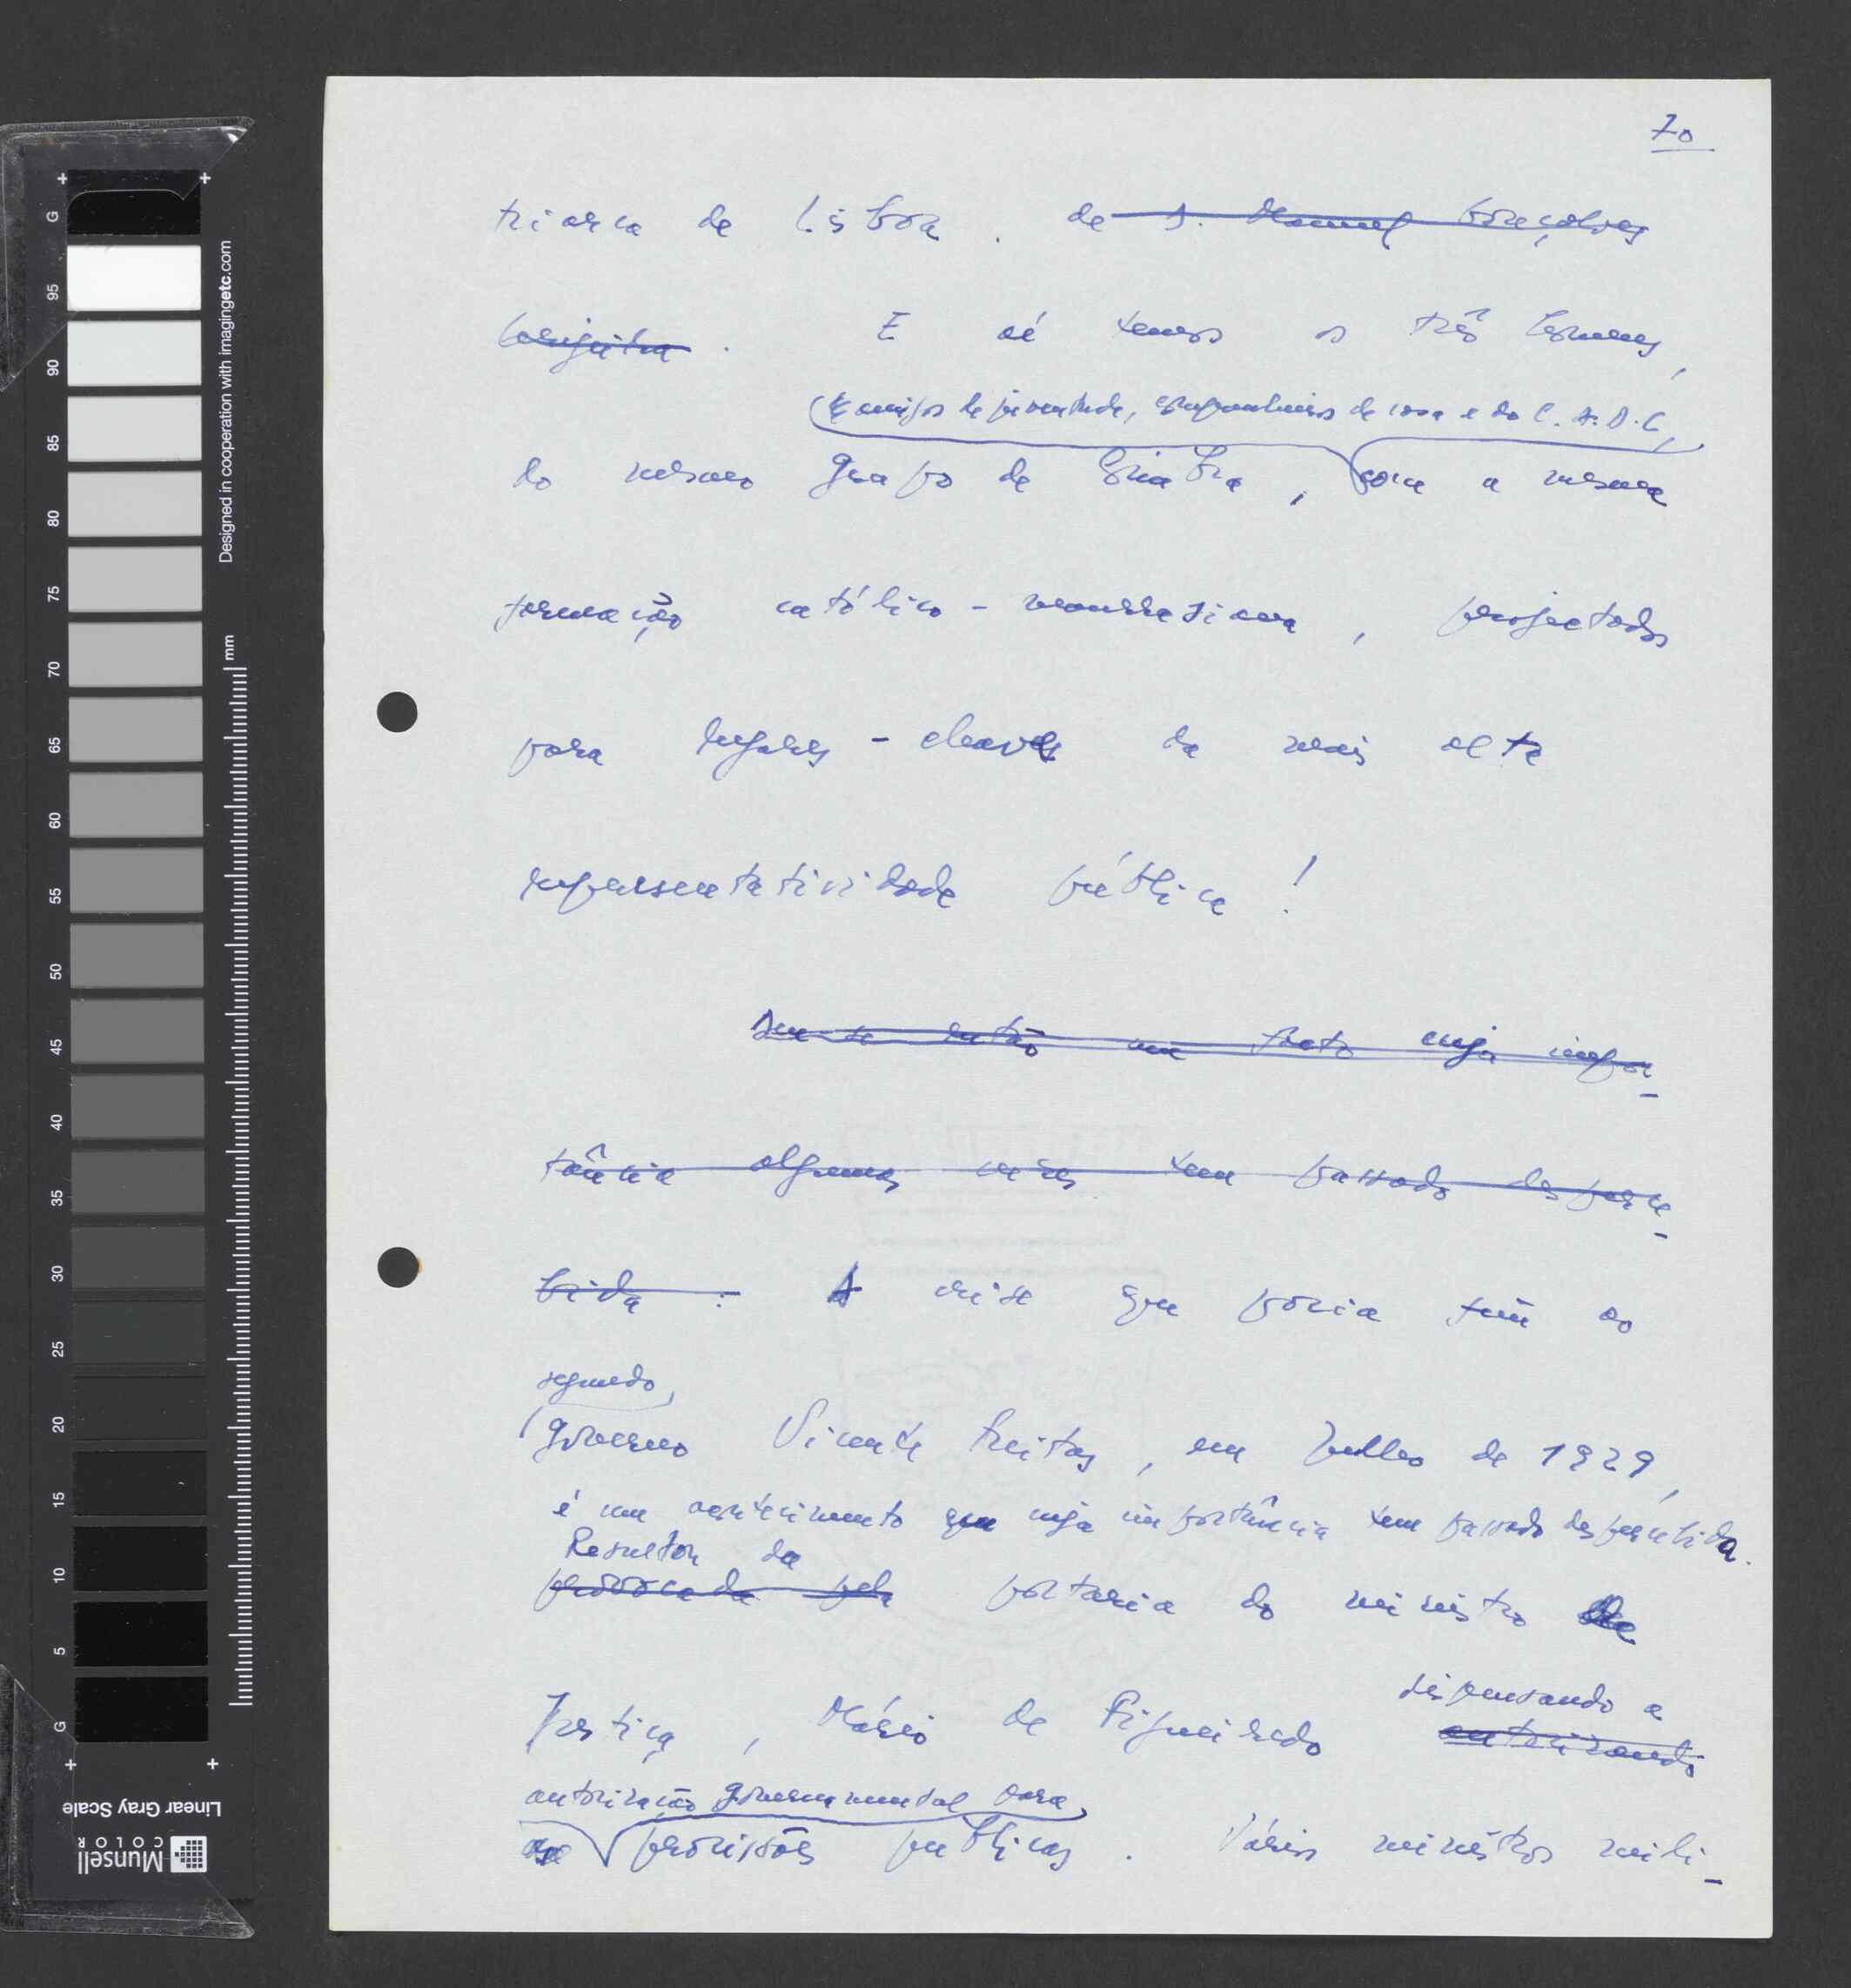 70
triarca de Lisboa. de D. Manuel Gonçalves
Cerejeira. E aí temos os três homens,
(amigos de juventude, companheiros de casa e do C.A.D.C,
do mesmo grupo de Coimbra, com a mesma
formação católico-monárquica, projectados
para lugares-chaves da mais alta
representatividade pública!
Deu-se então um facto cuja impor-
tância algumas vezes tem passado desperce-
bida: A crise que poria fim ao
segundo
governo Vicente Freitas, em Julho de 1929,
é um acontecimento que cuja importância tem passado despercebida.
Resultou da
provocada pela portaria do ministro da
Justiça, Mário de Figueiredo
dispensando a
autorizando
autorização governamental para
as procissões públicas. Vários ministros mili-
Designed in cooperation with imagingetc.com
mm
G
95
90
85
80
75
70
65
60
55
50
45
40
35
30
25
20
15
10
5
G
Linear Gray Scale
Munsell
COLOR